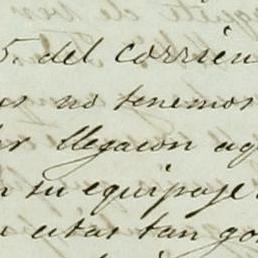 5. del corrien
no tenemos
llegacion ag
su equipage
estas tan go